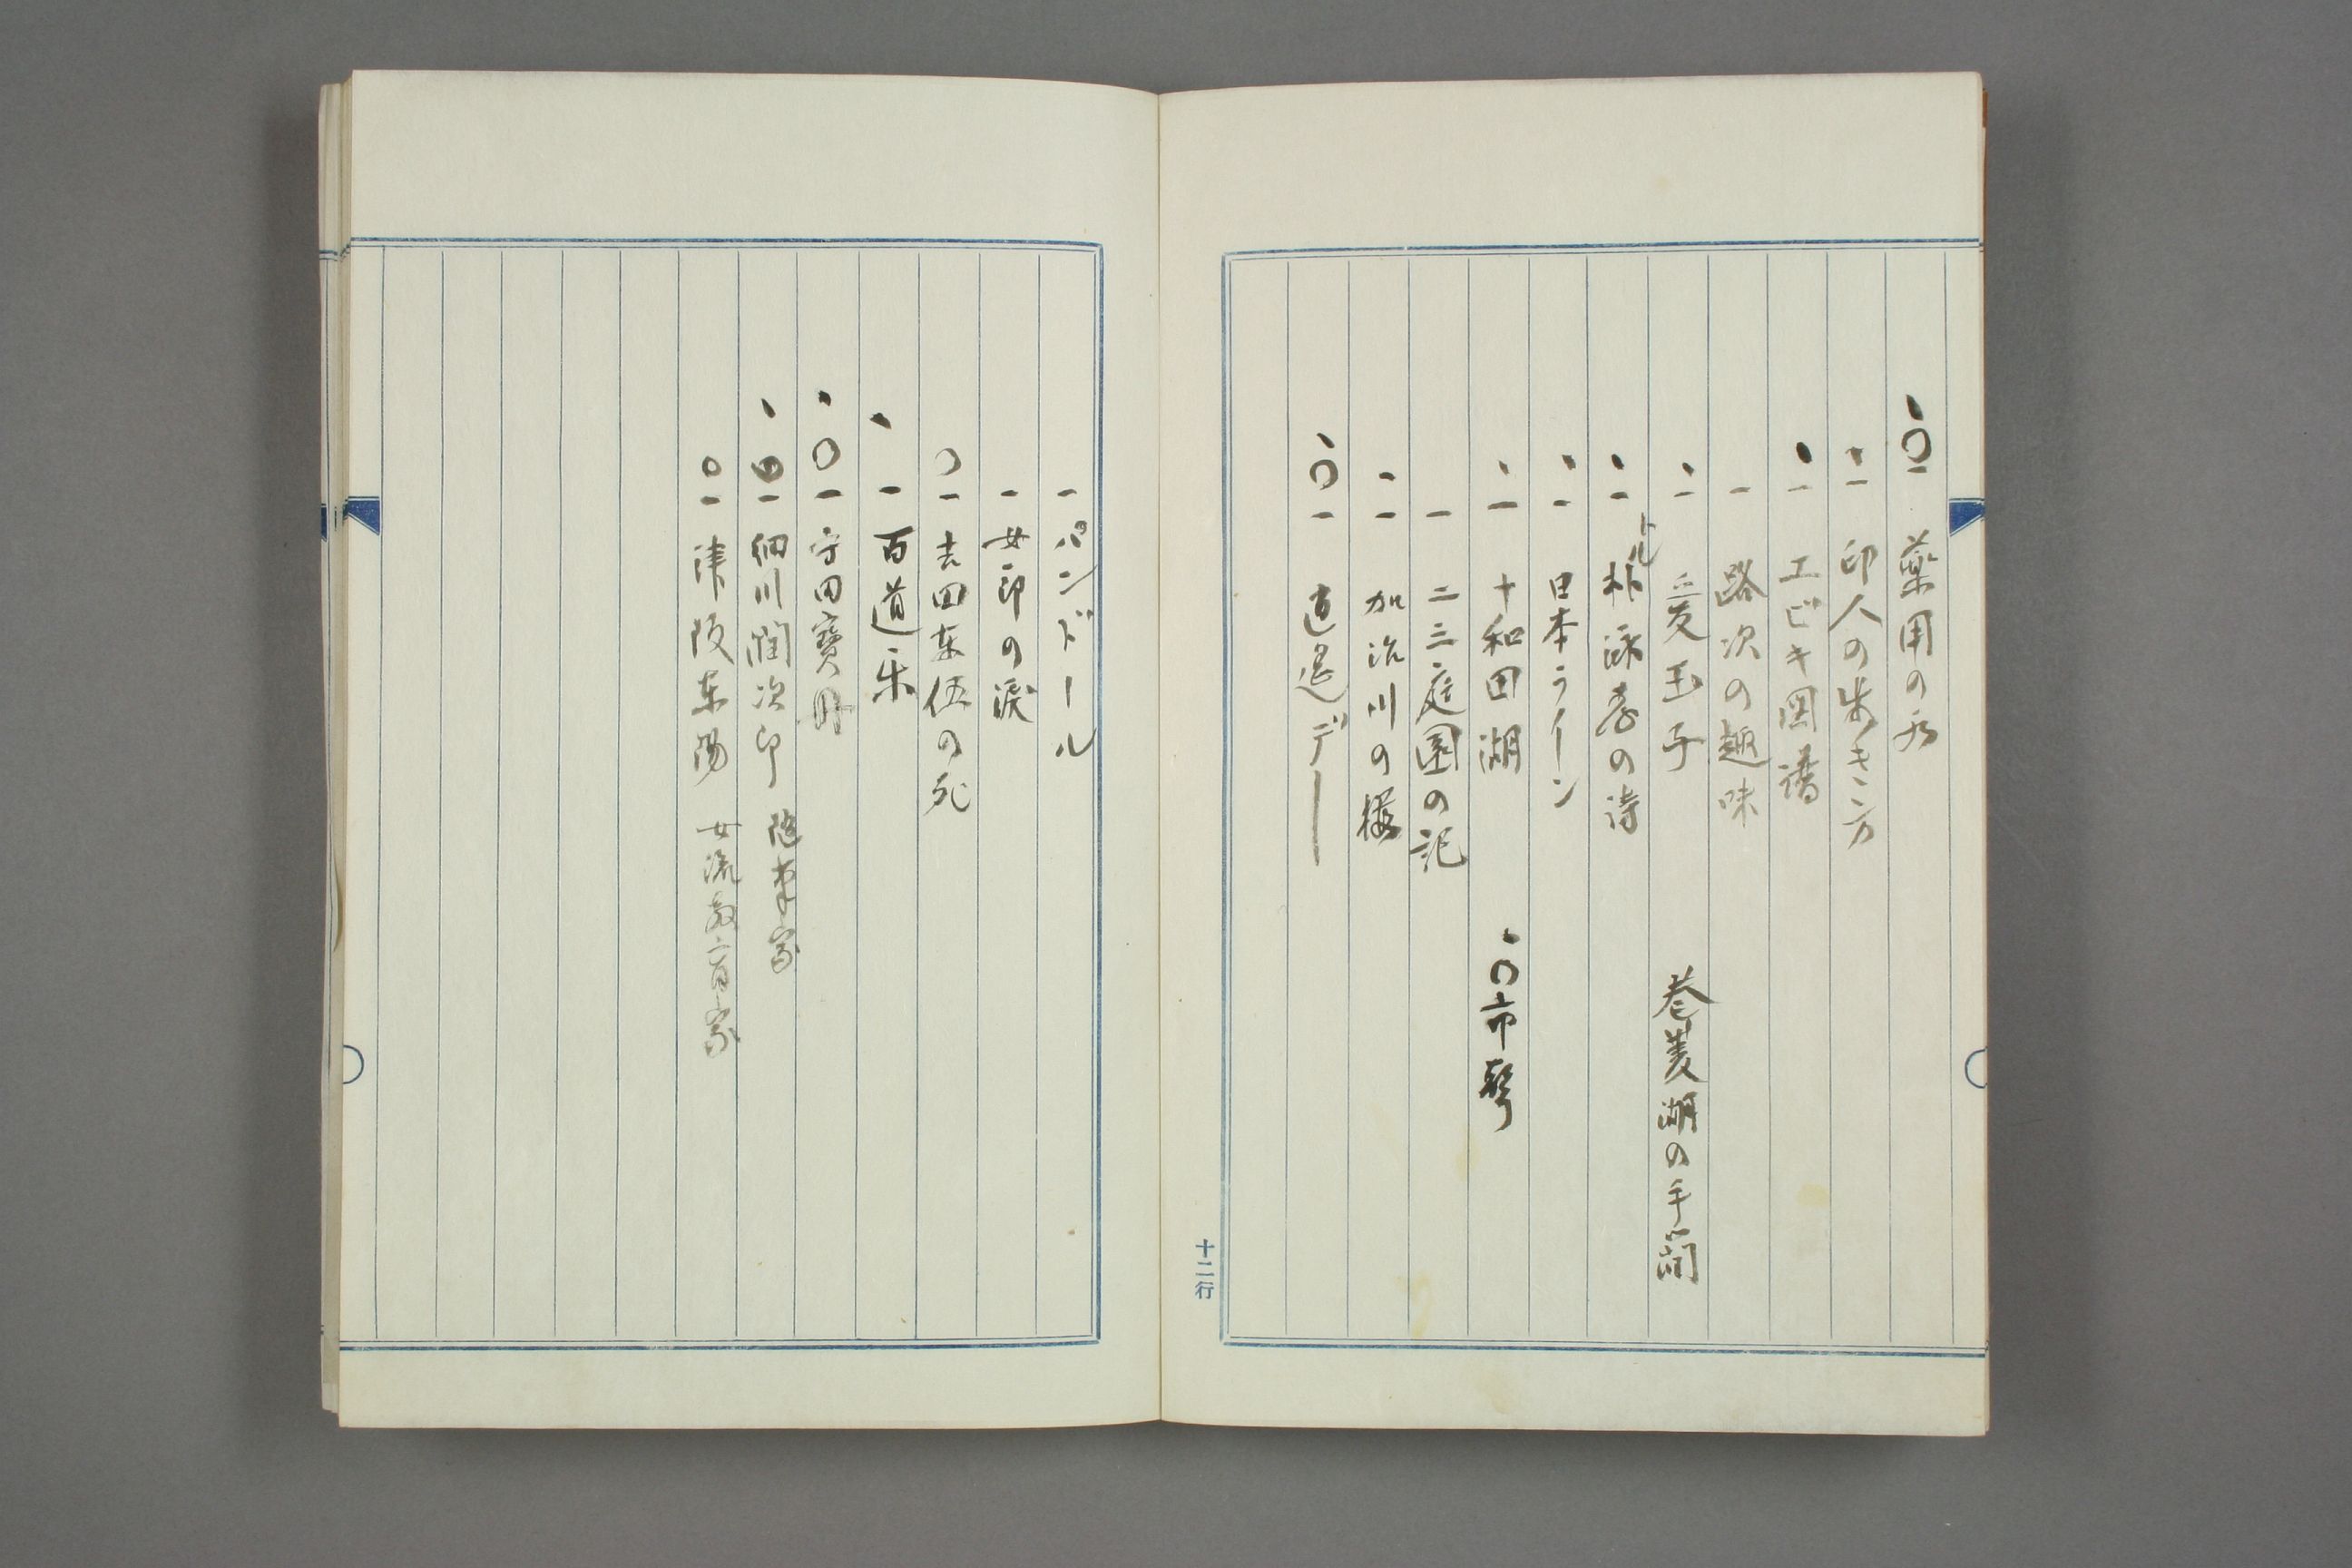 、〇一 薬用の水
、一 印人の歩き方
、一 エビキ図譜
一 路次の趣味
、一 愛玉子 巻菱湖の手簡
、一 朴泳孝の詩
トル
、一 日本ライーン
、一 十和田湖 、〇市琴
一 二三庭園の記
、一 加治川の桜
、〇一 逍遥デー
十二行
一 パンドール
一 女郎の涙
〇一 吉田東伍の死
、一 百道楽
、〇一 守田寶丹
、〇一 細川潤次郎 随筆家
〇一 津阪東陽 女流教育家